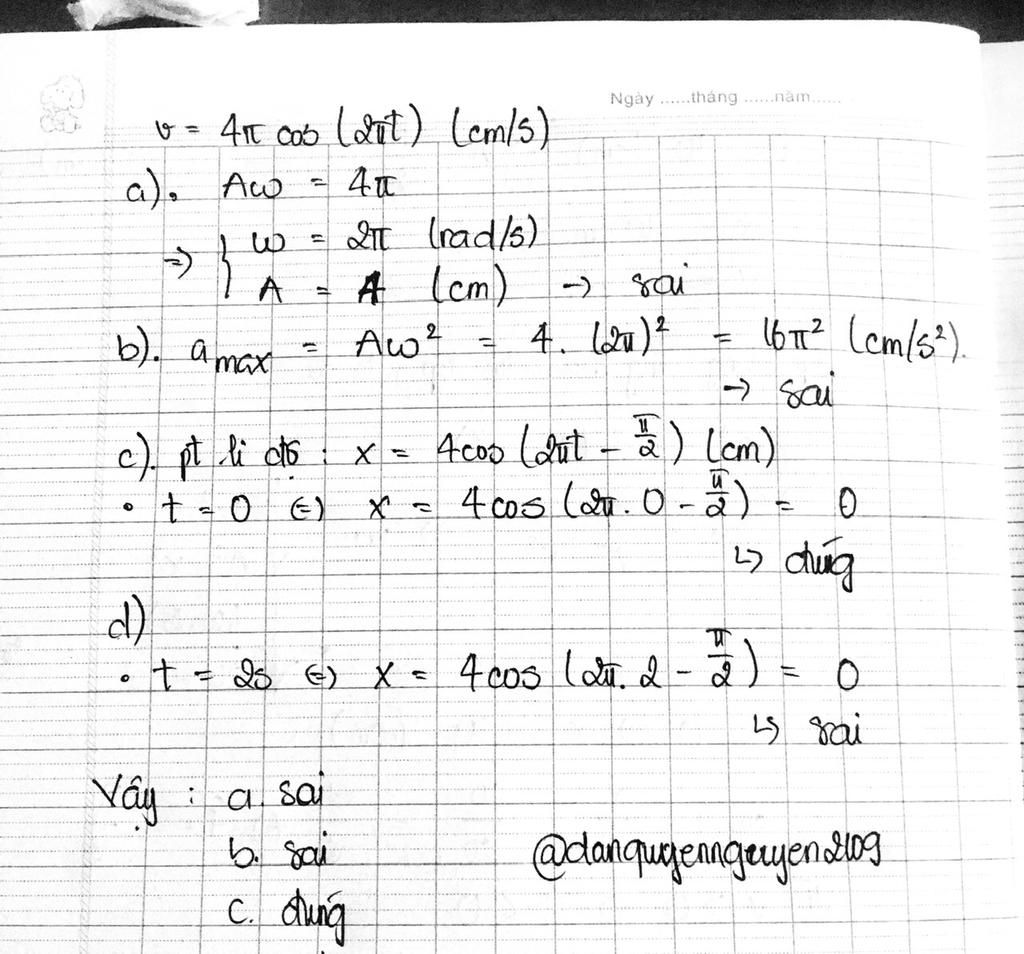 Ngày ......tháng ......năm......
v = 4π cos (2πt) (cm/s)
a). Aω = 4π
=> { ω = 2π (rad/s)
A = 4 (cm) → sai
b). a max = Aω² = 4. (2π)² = 16π² (cm/s²).
→ sai
c). pt li độ : x = 4cos (2πt - π/2) (cm)
• t = 0 (=) x = 4cos (2π. 0 - π/2) = 0
↳ đúng
d)
• t = 2s (=) x = 4cos (2π. 2 - π/2) = 0
↳ sai
Vậy : a. sai
b. sai
@danquyennguyen2109
c. đúng